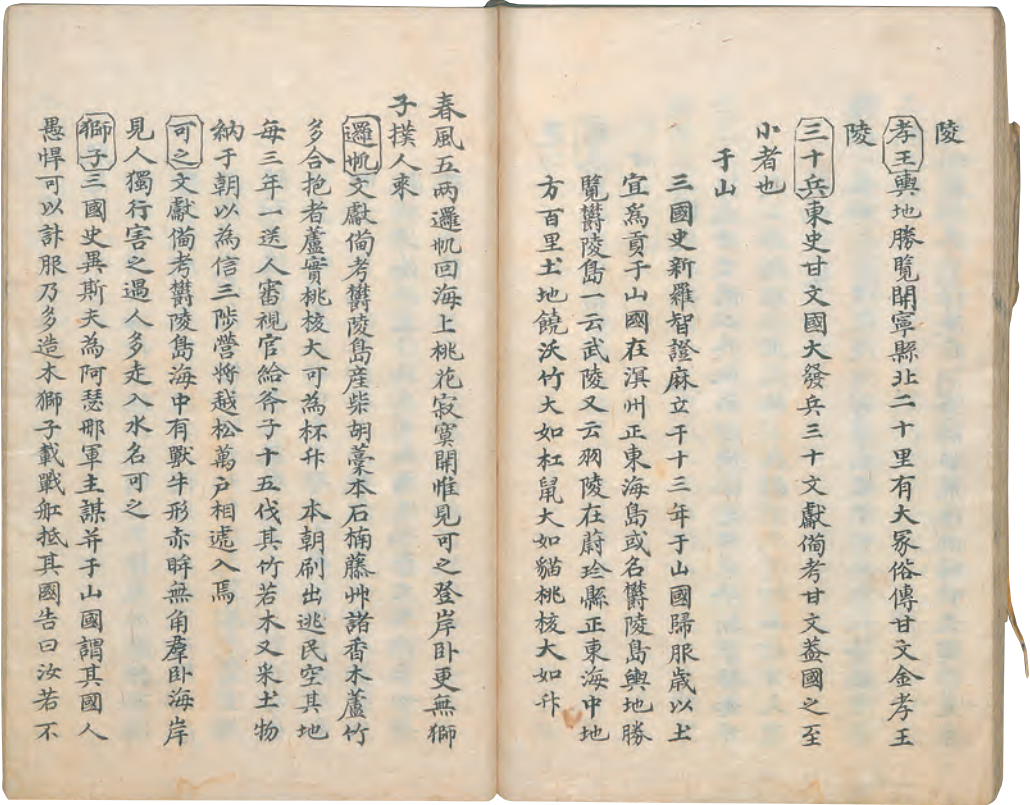 陵
孝王輿地勝覽開寧縣北二十里有大冢俗傳甘文金孝王
陵
三十兵東史甘文國大發兵三十文獻備考甘文葢國之至
小者也
于山
三國史新羅智證麻立干十三年于山國歸服歲以土
宜爲貢于山國在溟州正東海島或名欝陵島輿地勝
覽欝陵島一云武陵又云羽陵在蔚珍縣正東海中地
方百里土地饒沃竹大如杠鼠大如貓桃核大如升
春風五兩邏帆回海上桃花寂寞開惟見可之登岸卧更無獅
子撲人來
邏帆文獻備考欝陵島産柴胡藁本石楠藤艸諸香木蘆竹
多合抱者蘆實桃核大可為杯升 本朝刷出逃民空其地
每三年一送人審視官給斧子十五伐其竹若木又采土物
納于朝以為信三陟營将越松萬户相遞入焉
可之文獻備考欝陵島海中有獸牛形赤眸無角羣卧海岸
見人獨行害之遇人多走入水名可之
獅子三國史異斯夫為阿瑟那軍主謀并于山國謂其國人
愚悍可以計服乃多造木獅子載戰舡抵其國告曰汝若不